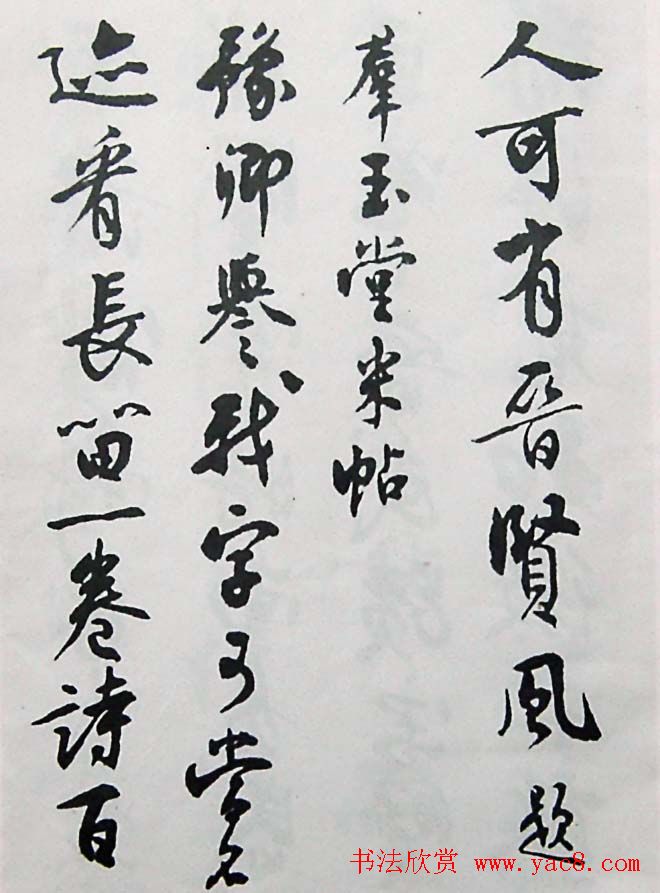 人可有晉賢風題
羣玉堂米帖
豫卿譽我字可當名
迹看長留一卷詩百
书法欣赏 www.yac8.com